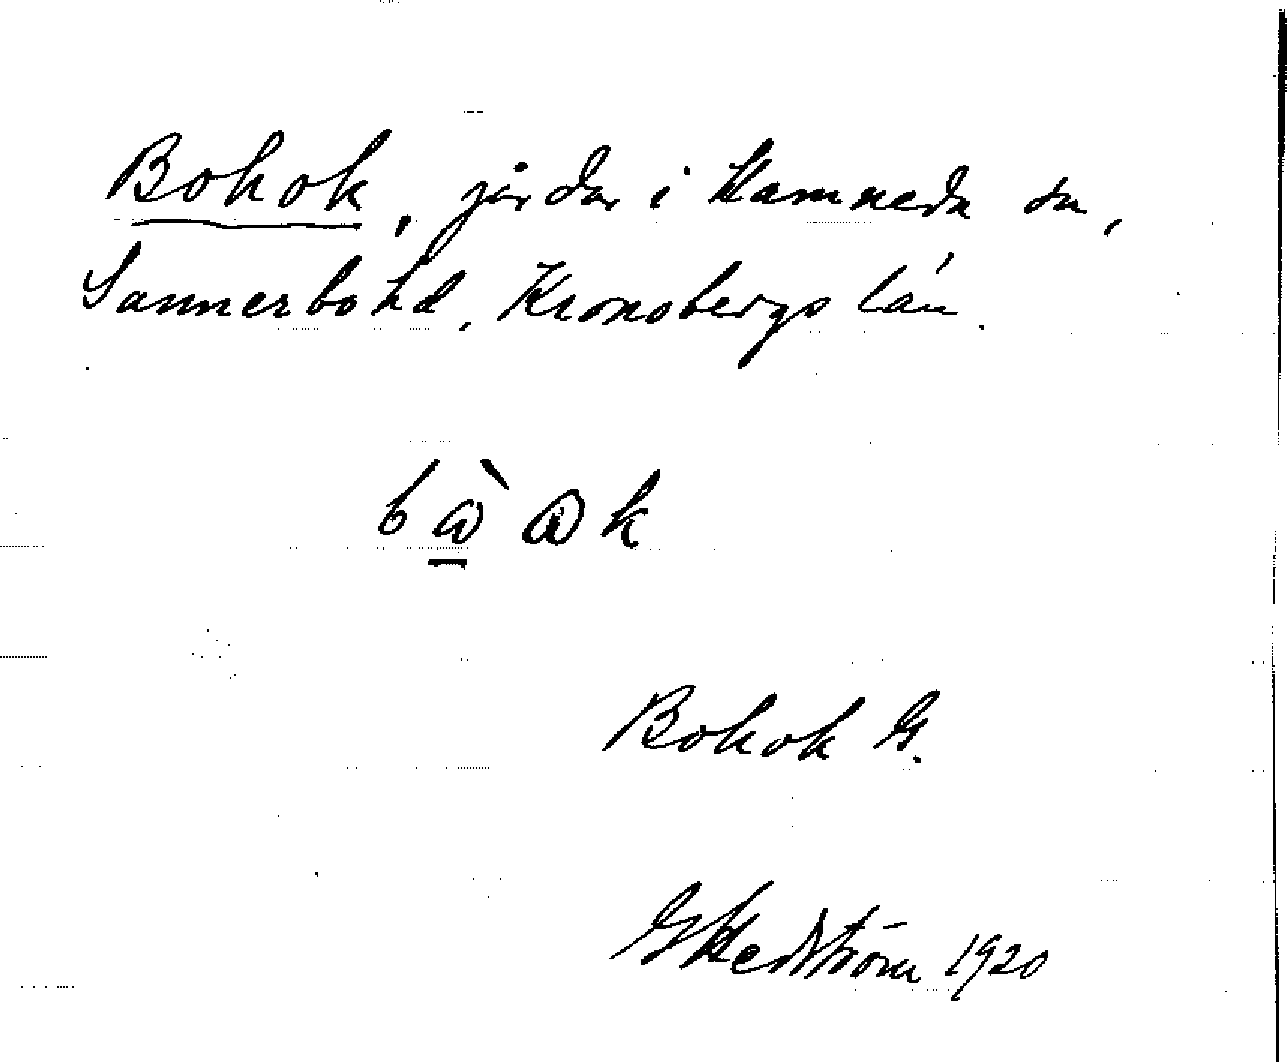 Bohok, gårdar i Hamneda sn,
Sunnerbo hd, Kronobergs län.
Bohok G.
G Hedström 1920